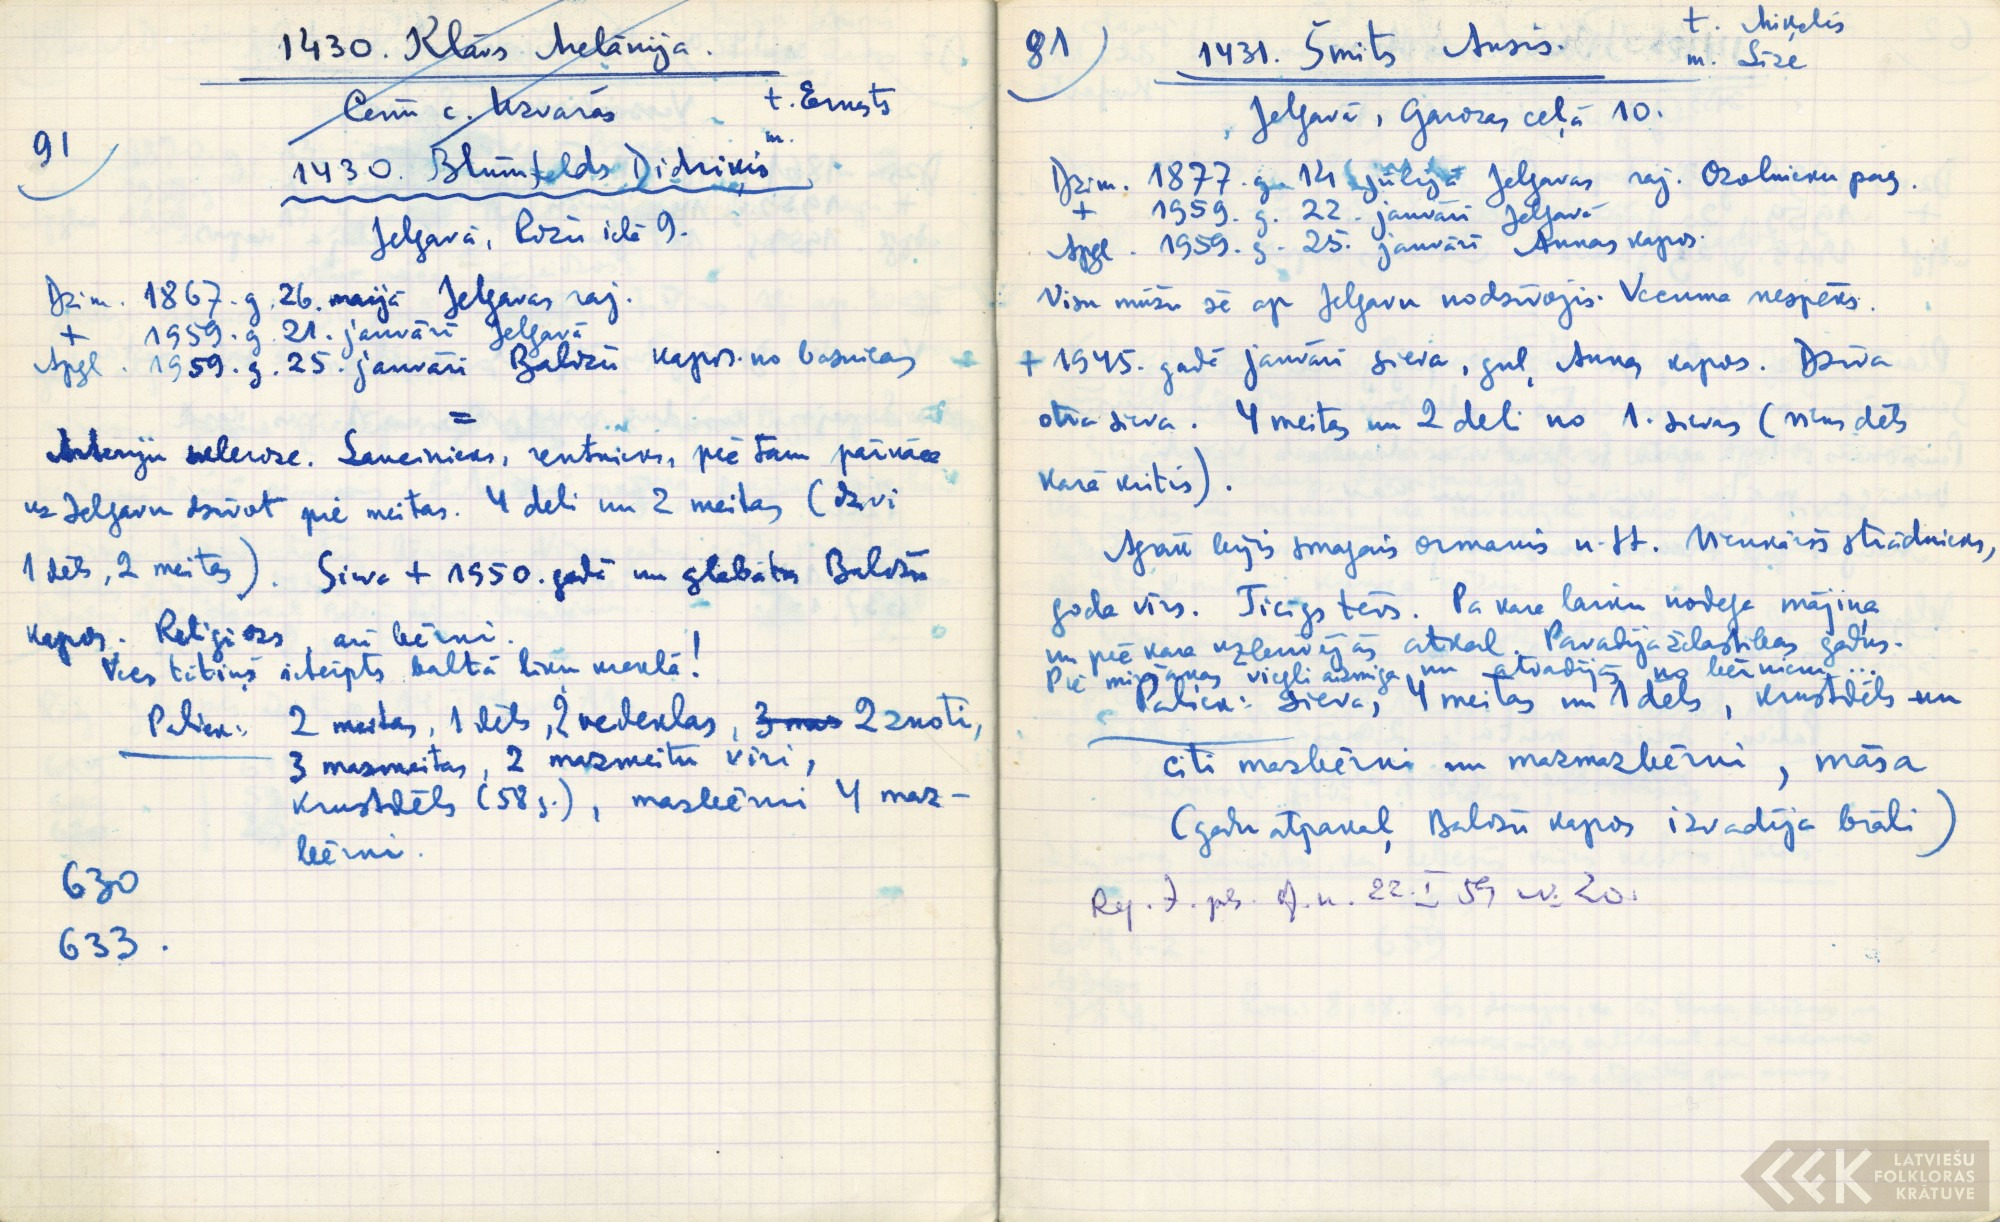 1430. Klāvs Melānija.
Ceriņ c. Uzvarās
t. Ernests
m.
91
1430. Blūmfelds Didriķis
Jelgavā, Rožu ielā 9.
Dzim. 1867. g. 26. maijā Jelgavas raj.
+ 1959. g. 21. janvārī Jelgavā
Apgl. 1959. g. 25. janvārī Baložu kapos no baznīcas
=
Arteriju skleroze. Saimnieks, rentnieks, pēc tam pārnāca
uz Jelgavu dzīvot pie meitas. 4 dēli un 2 meitas (dzīvi
1 dēls, 2 meitas). Sieva + 1950. gadā un glabāta Baložu
kapos. Religiozs, arī bērni.
Vecs tētiņš ietērpts baltā līķu kreklā!
Paliek: 2 meitas, 1 dēls, 2 vedeklas, 3 maz 2 znoti,
3 mazmeitas, 2 mazmeitu vīri,
krustdēls (58 g.), mazbērni 4 maz-
bērni.
630
633.
81
1431. Šmits Ansis.
t. Miķelis
m. Līze
Jelgavā, Garozas ceļā 10.
Dzim. 1877. g. 14 jūlijā Jelgavas raj. Ozolnieku pag.
+ 1959. g. 22. janvārī Jelgavā
Apgl. 1959. g. 25. janvārī Annas kapos.
Visu mūžu šē ap Jelgavu nodzīvojis. Vecuma nespēks.
+ 1945. gadā janvārī sieva, guļ Annas kapos. Dzīva
otra sieva. 4 meitas un 2 dēli no 1. sievas (viens dēls
karā kritis).
Agrāk bijis smagais ormanis u. tt. Vienkāršs strādnieks,
goda vīrs. Ticīgs tēvs. Pa kara laiku nodega mājiņa
un pēc kara uzbūvējās atkal. Pavadīja žēlastības gadus.
Pie miršanas viegli aizmiga un atvadījās no bērniem...
Paliek: sieva, 4 meitas un 1 dēls, krustdēls un
citi mazbērni un mazmazbērni, māsa
(gadu atpakaļ Baložu kapos izvadīja brāli)
Reģ. J. pils. 22. I 59 Nr. 20.
LATVIEŠU
FOLKLORAS
KRĀTUVE